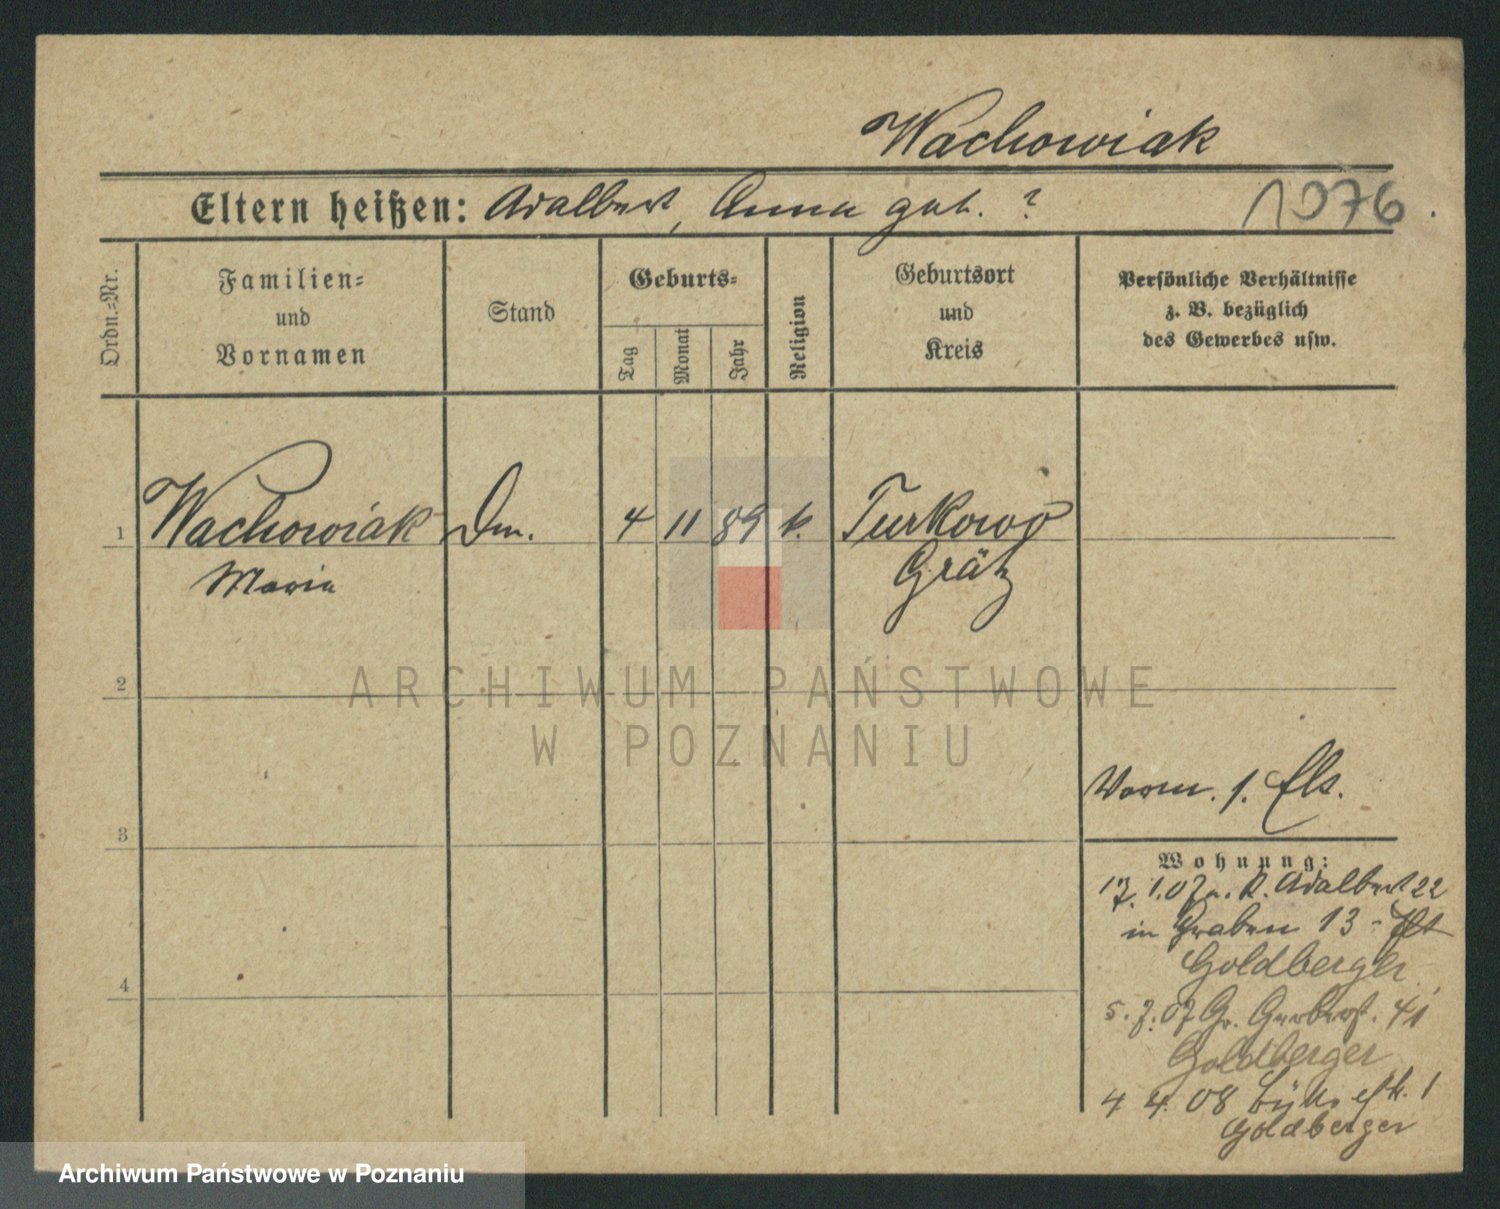 Wachowiak
Eltern heißen: Adalbert, Anna geb. ?
1076.
Ordn.-Nr.
Familien-
und
Vornamen
Stand
Geburts-
Tag
Monat
Jahr
Religion
Geburtsort
und
Kreis
Persönliche Verhältnisse
z. B. bezüglich
des Gewerbes usw.
1 Wachowiak Dm. 4 11 89 k. Turkowo
Maria Grätz
2
ARCHIWUM PAŃSTWOWE
W POZNANIU
3
4
Vorm. 1.
Wohnung:
17. 1. 07 Adalbert 22
in Graben 13
Goldberger
5. 7. 07 Gr. Gerberst. 41
Goldberger
4 4. 08 1
Goldberger
Archiwum Państwowe w Poznaniu